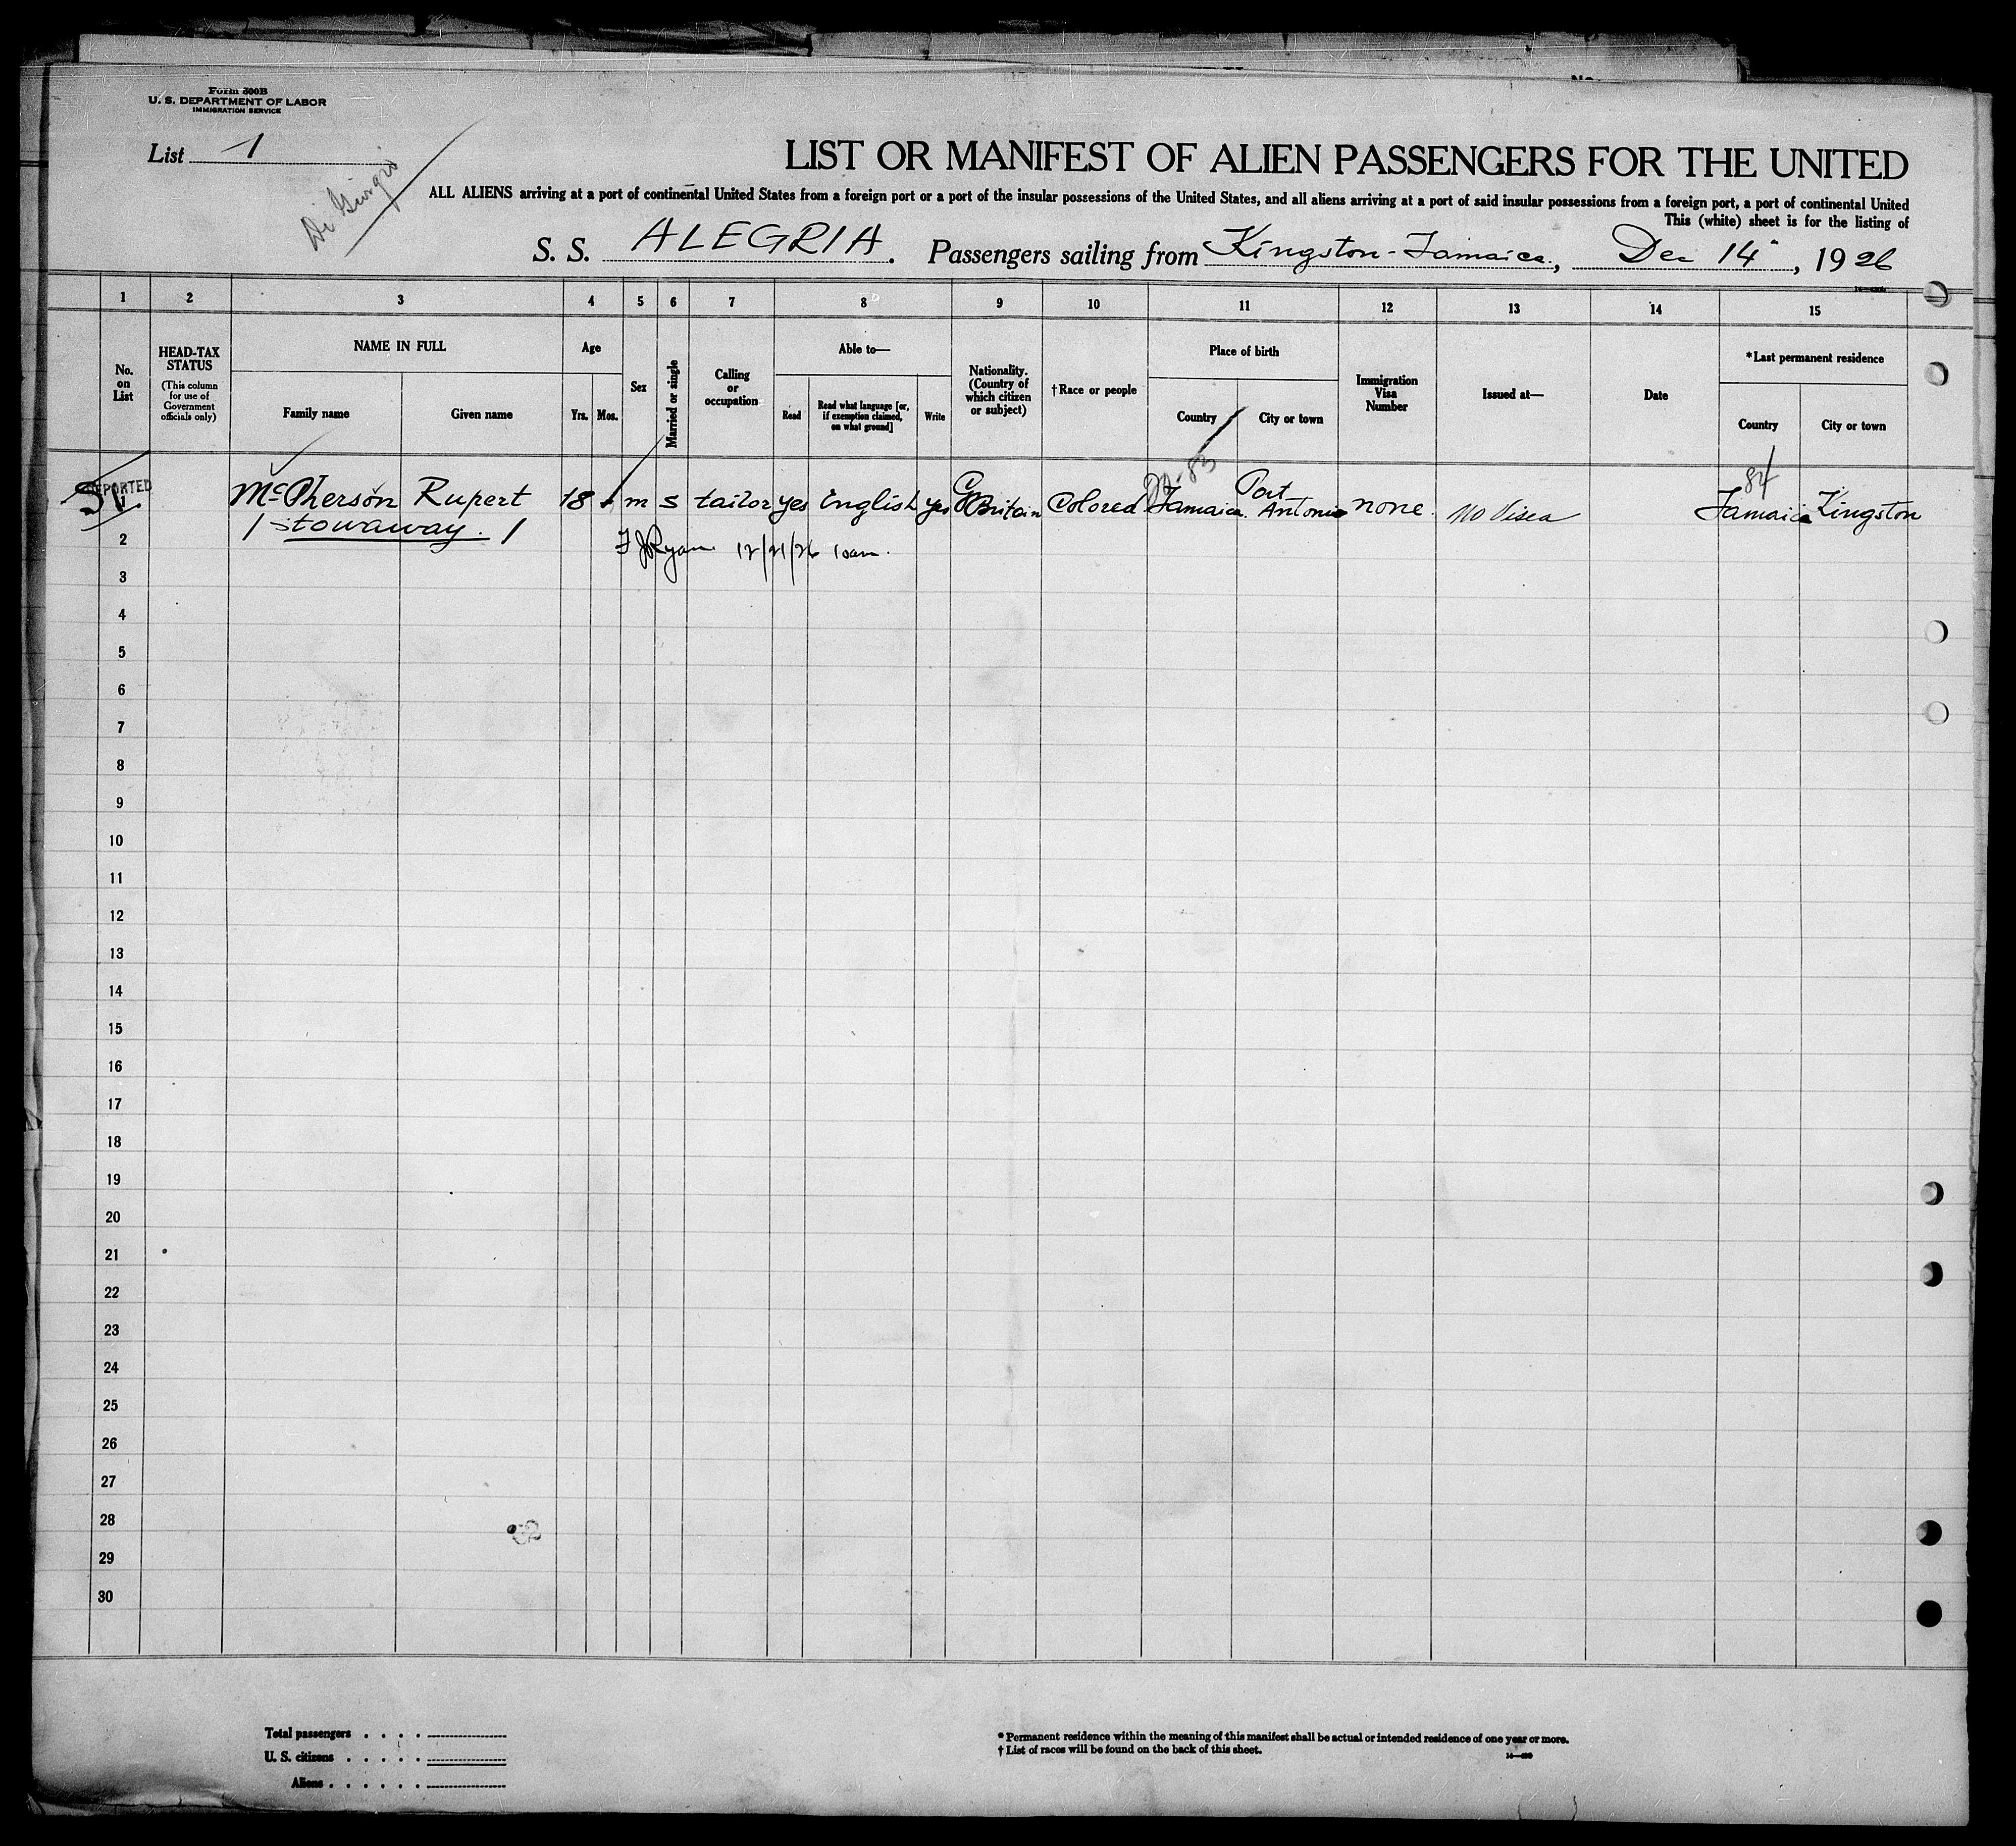 Form 500B
U. S. DEPARTMENT OF LABOR
IMMIGRATION SERVICE
List 1
Di Giorgio
LIST OR MANIFEST OF ALIEN PASSENGERS FOR THE UNITED
ALL ALIENS arriving at a port of continental United States from a foreign port or a port of the insular possessions of the United States, and all aliens arriving at a port of said insular possessions from a foreign port, a port of continental United
This (white) sheet is for the listing of
S. S. ALEGRIA. Passengers sailing from Kingston-Jamaica., Dec 14", 1926
1 2 3 4 5 6 7 8 9 10 11 12 13 14 15
No. on List
HEAD-TAX STATUS
(This column for use of Government officials only)
NAME IN FULL
Family name
Given name
Age
Yrs.
Mos.
Sex
Married or single
Calling or occupation
Able to—
Read
Read what language [or, if exemption claimed, on what ground]
Write
Nationality. (Country of which citizen or subject)
†Race or people
Place of birth
Country
City or town
Immigration Visa Number
Issued at—
Date
*Last permanent residence
Country
City or town
DEPORTED
McPherson Rupert 18 m s tailor yes English yes G Britain Colored Jamaica. Port Antonio none. no visea 84 Jamaica Kingston
1 stowaway. 1
2 F J Ryan 12/21/26 10am.
3
4
5
6
7
8
9
10
11
12
13
14
15
16
17
18
19
20
21
22
23
24
25
26
27
28
29
30
Total passengers . . . .
U. S. citizens . . . . .
Aliens . . . . . .
* Permanent residence within the meaning of this manifest shall be actual or intended residence of one year or more.
† List of races will be found on the back of this sheet.